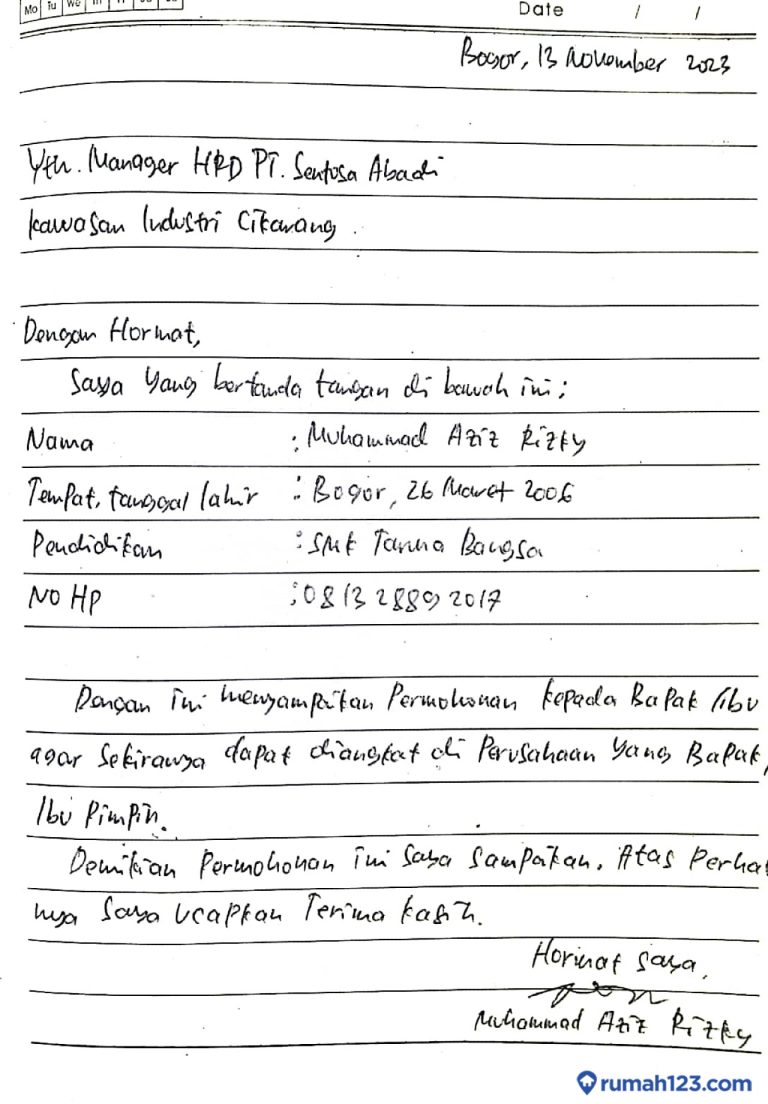 Mo Tu We
Date / /
Bogor, 13 November 2023
Yth. Manager HRD PT. Sentosa Abadi
Kawasan Industri Cikarang.
Dengan Hormat,
Saya yang bertanda tangan di bawah ini:
Nama : Muhammad Aziz Rizky
Tempat, tanggal lahir : Bogor, 26 Maret 2006
Pendidikan : SMK Taruna Bangsa
No HP : 0813 2889 2017
Dengan ini menyampaikan Permohonan kepada Bapak/ibu
agar sekiranya dapat diangkat di Perusahaan yang Bapak,
Ibu Pimpin.
Demikian Permohonan ini saya sampaikan. Atas Perha
nya saya ucapkan Terima kasih.
Hormat saya,
Muhammad Aziz Rizky
rumah123.com